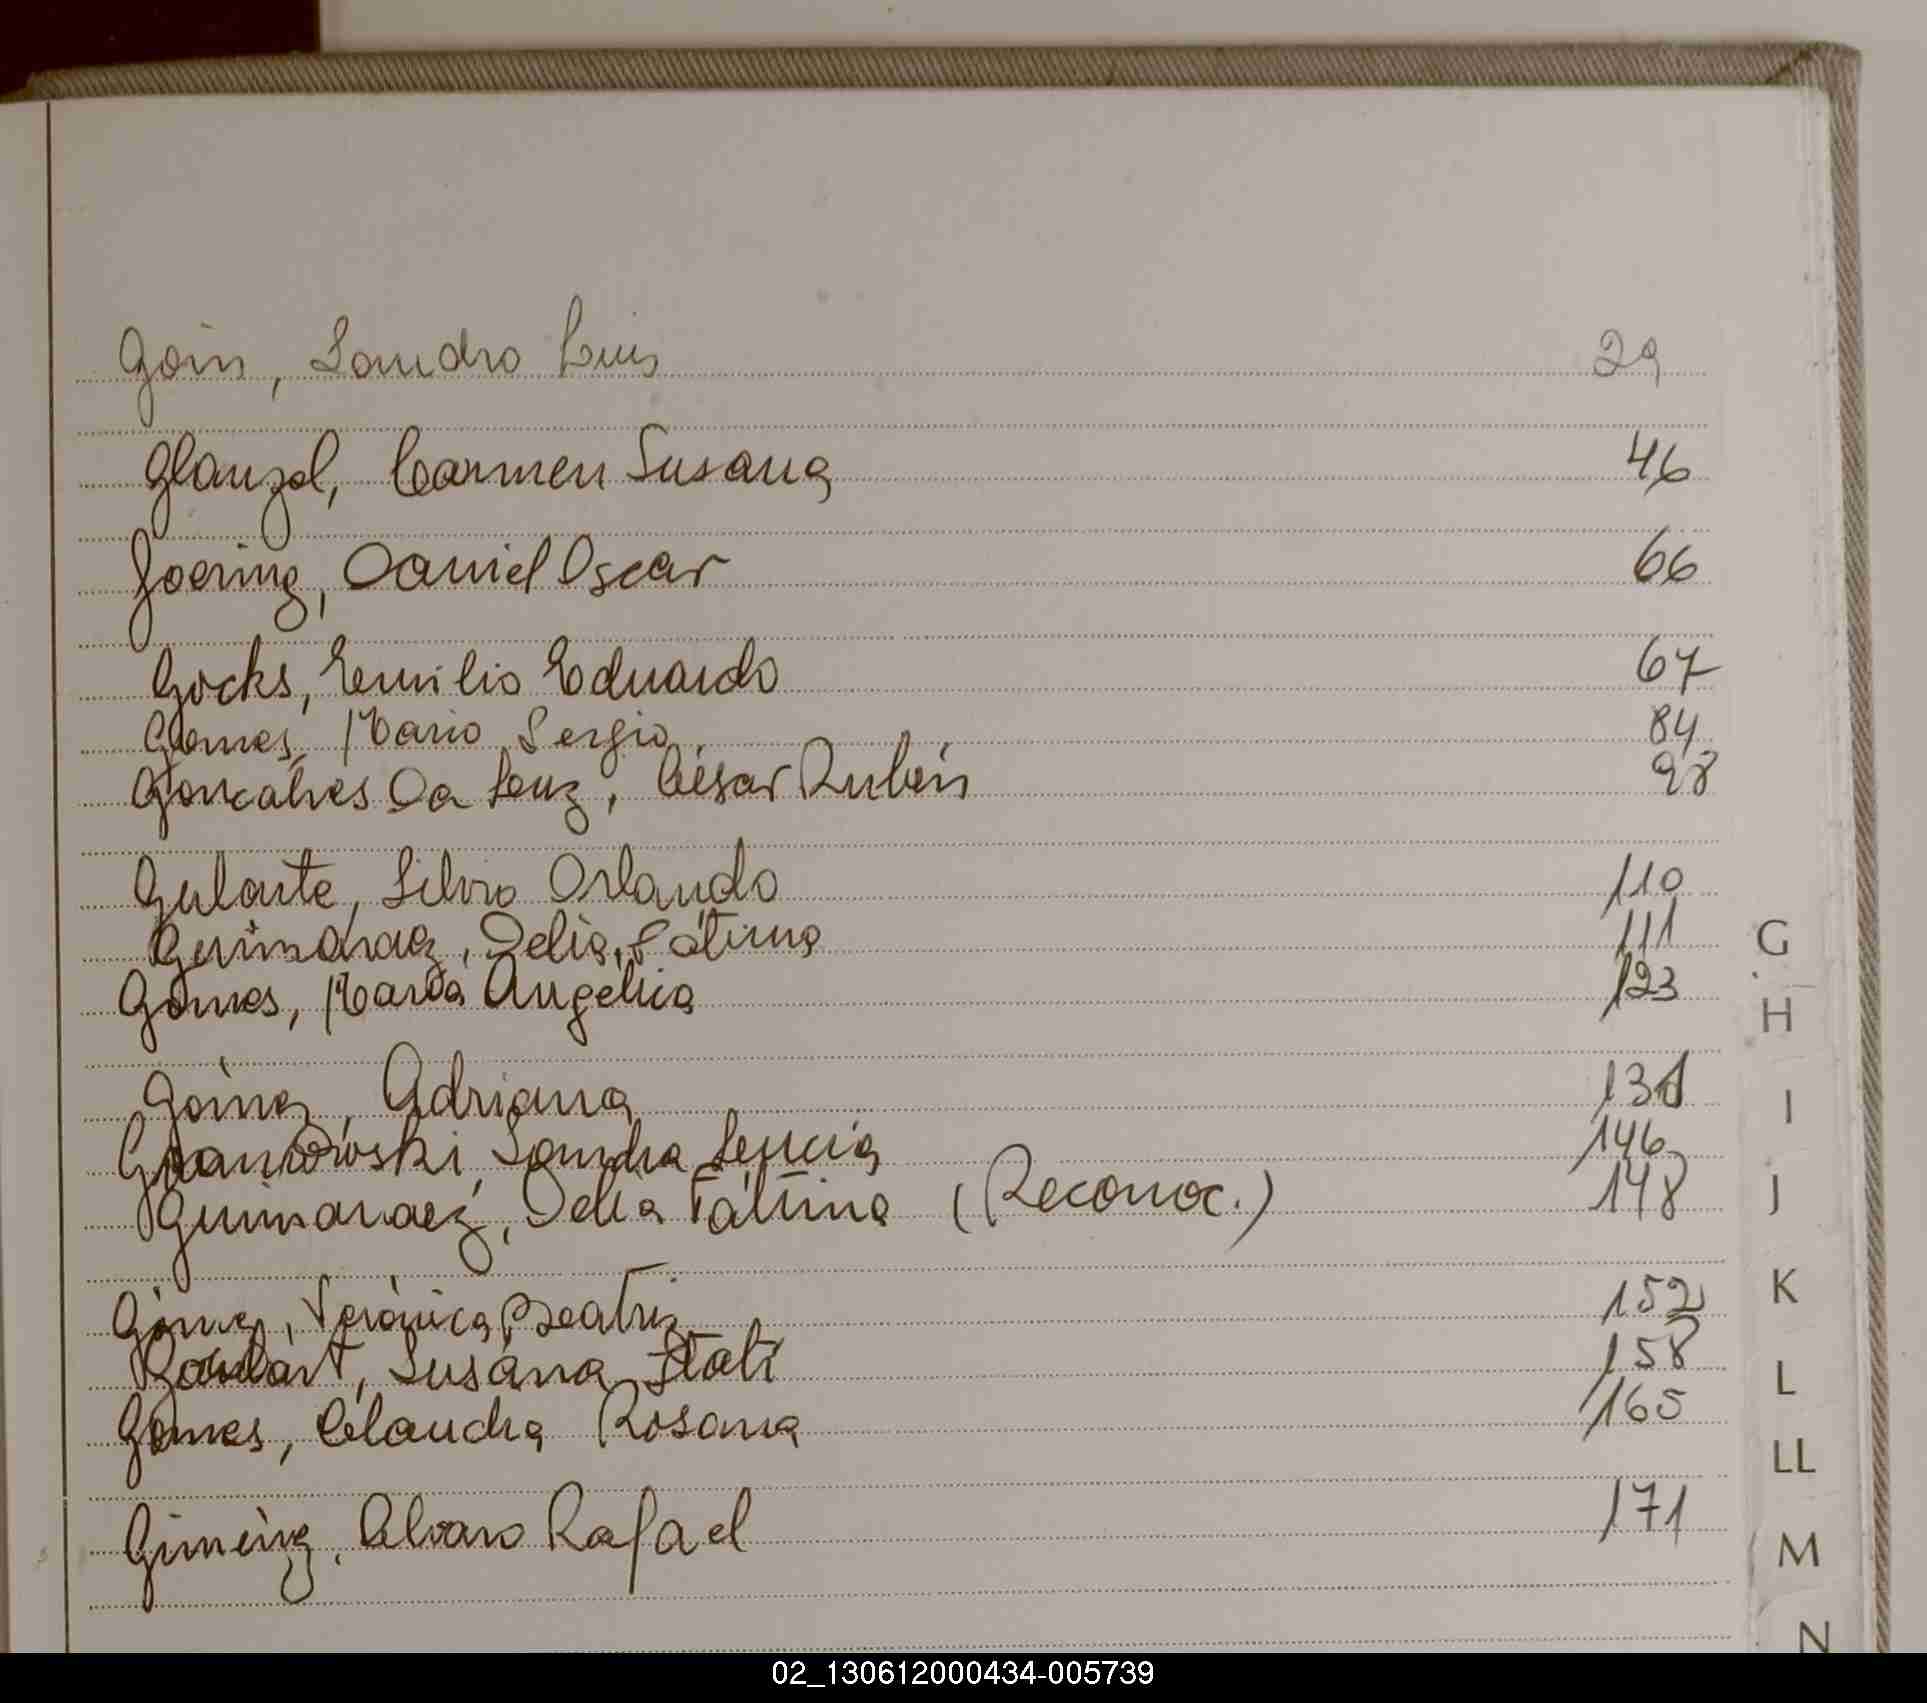 Gois, Sandro Luis 29
Glanzel, Carmen Susana 46
Goering, Daniel Oscar 66
Gocks, Emilio Eduardo 67
Gomes, Mario Sergio 84
Goncalves Da Luz, César Rubén 98
Gularte, Silvio Orlando 110
Guimaraez, Delia Fátima 111
Gomes, María Angélica 123
Gómez, Adriana 131
Sandra Lucía 146
Guimaraez, Delia Fátima (Reconoc.) 148
Gómez, Verónica Beatriz 152
Susana Itatí 158
Gomes, Claudia Rosana 165
Giménez, Alvaro Rafael 171
G
H
I
J
K
L
LL
M
N
02_130612000434-005739